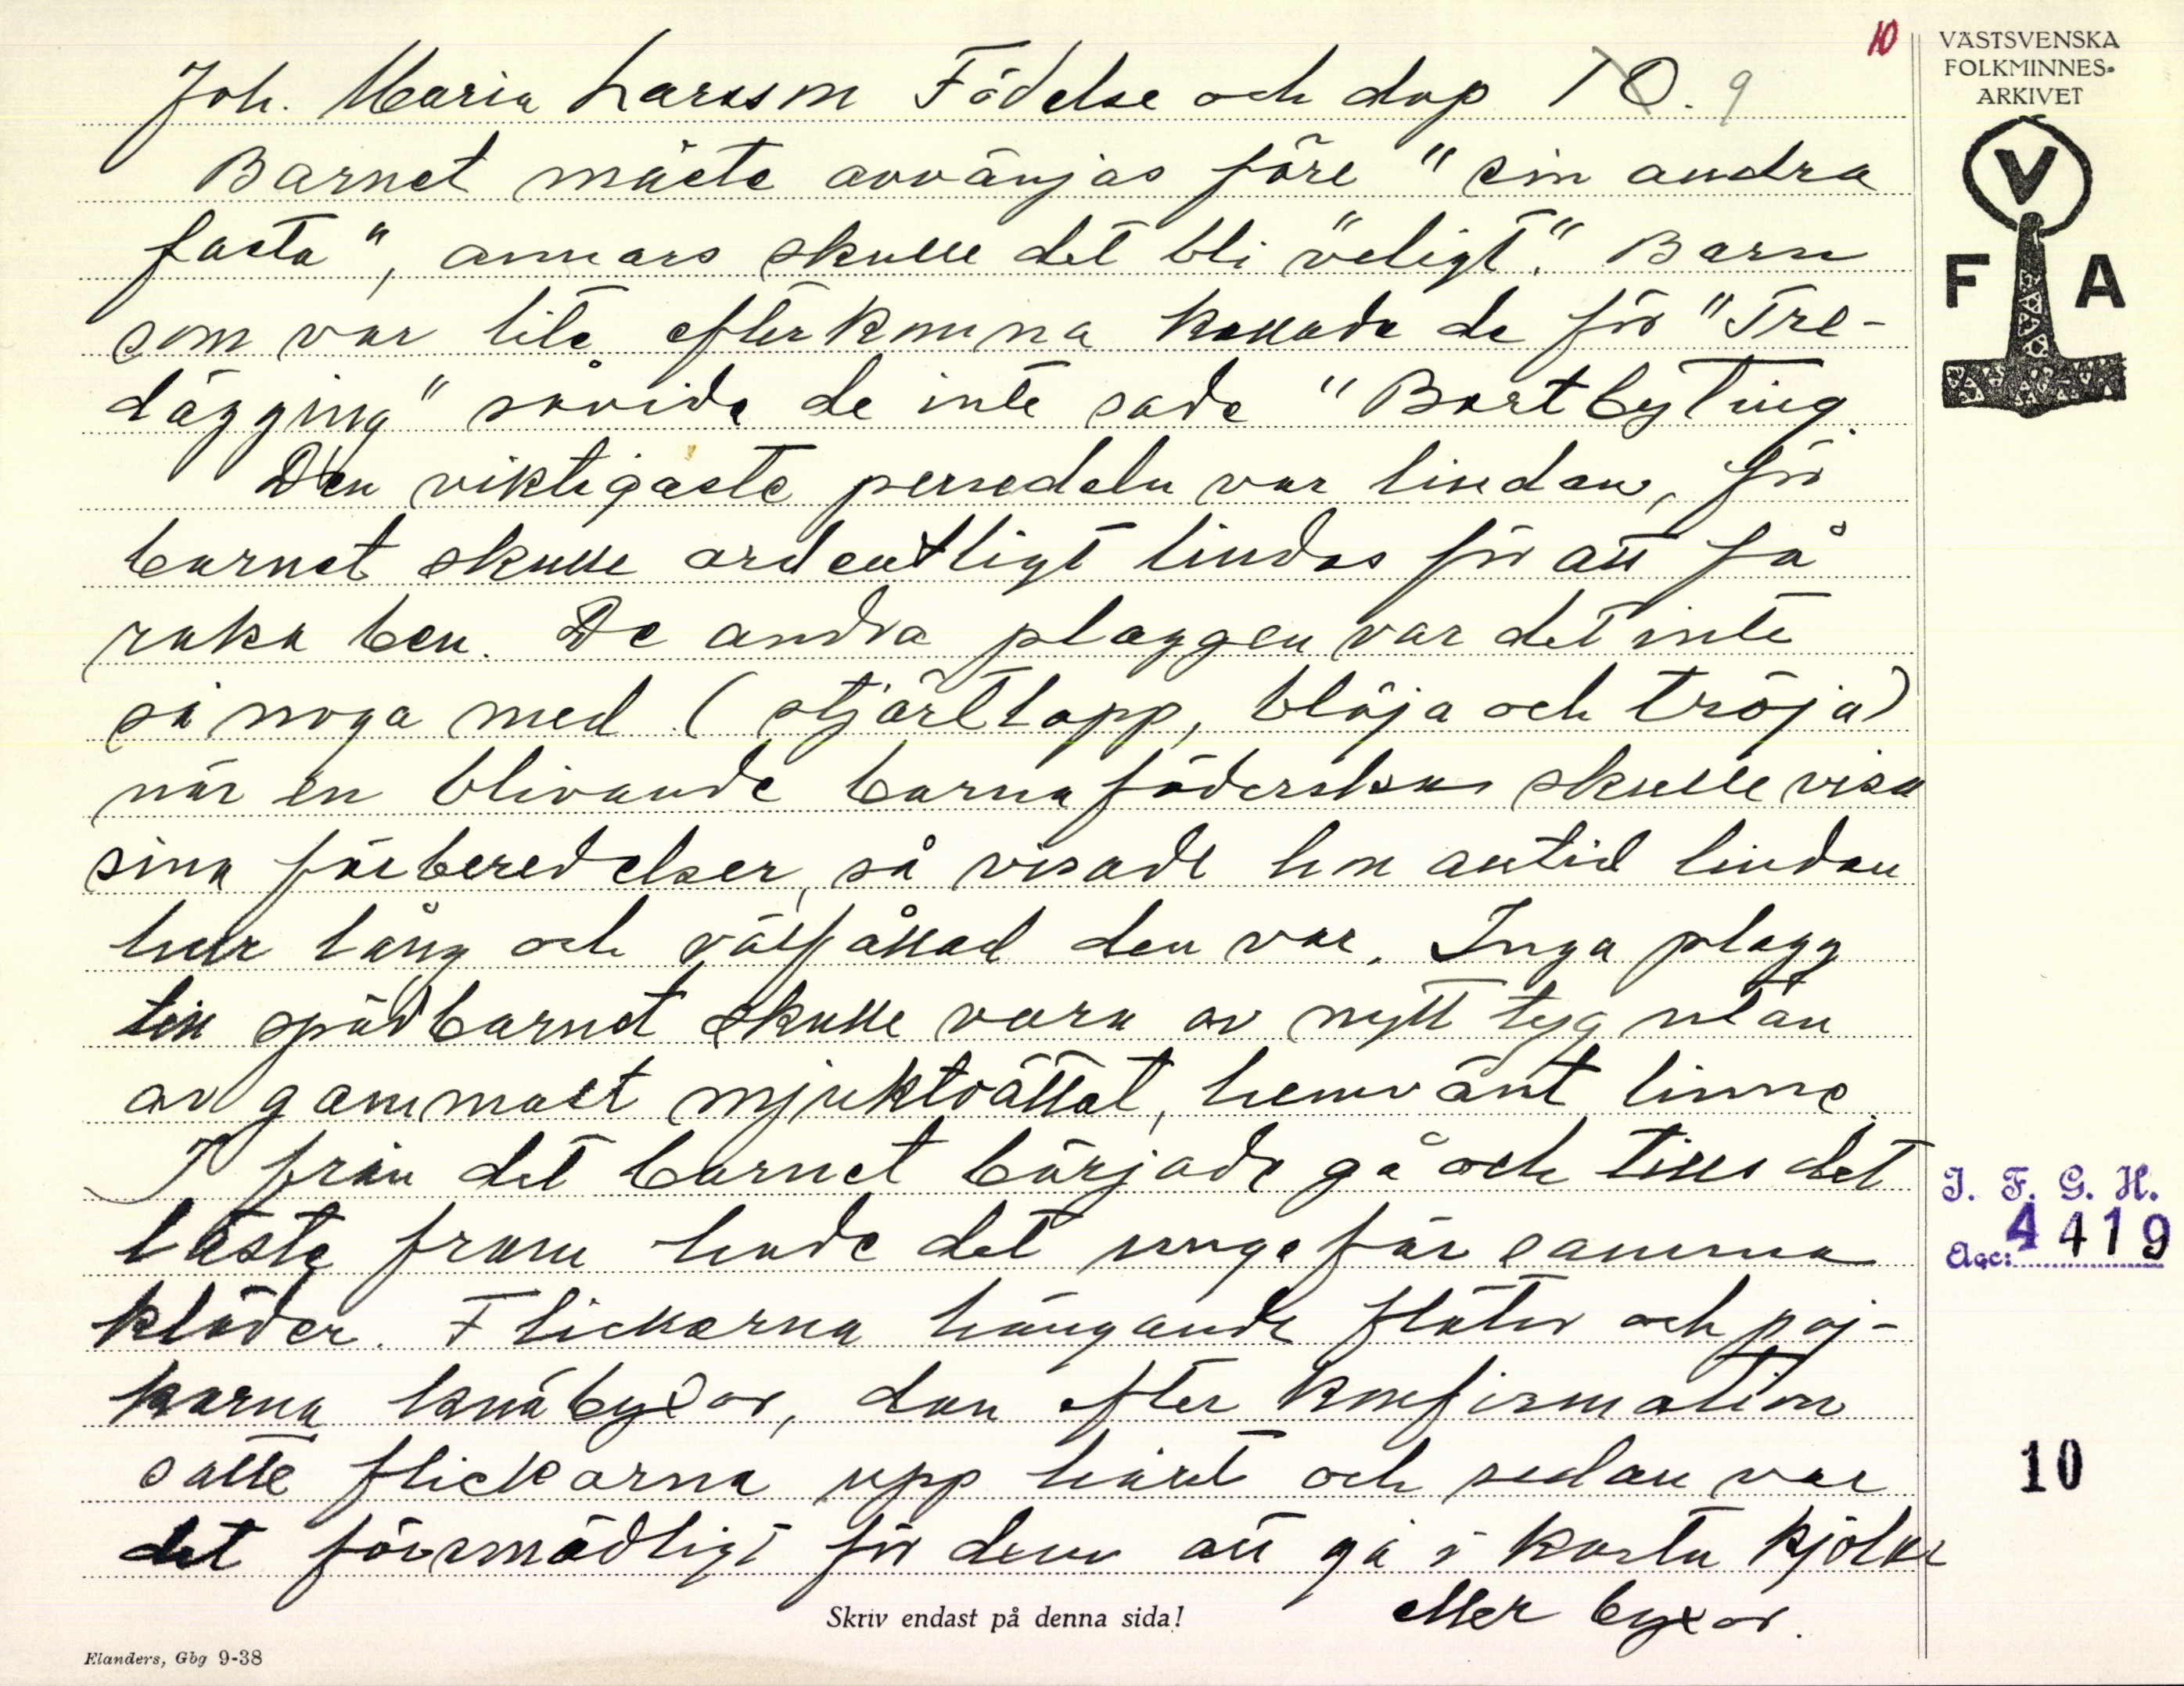 10
VÄSTSVENSKA
FOLKMINNES-
ARKIVET
V
F A
Joh. Maria Larsson Födelse och dop 10. 9
Barnet måste avvänjas före "sin andra
fasta", annars skulle det bli "veligt". Barn
som var lite efterkomna kallade de för "Tre-
dägging" såvida de inte sade "Bortbyting.
Den viktigaste persedeln var lindan, för
barnet skulle ordentligt lindas för att få
raka ben. De andra plaggen var det inte
så noga med (stjärtlapp, blöja och tröja)
när en blivande barnaföderska skulle visa
sina förberedelser, så visade hon alltid lindan
hur lång och välfållad den var. Inga plagg
till spädbarnet skulle vara av nytt tyg utan
av gammalt mjuktvättat, hemvänt linne.
I från det barnet började gå och tills det
läste fram hade det ungefär samma
kläder. Flickorna hängande flätor och poj-
karna knäbyxor, dan efter konfirmation
satte flickorna upp håret och sedan var
det försmädligt för dem att gå i korta kjolar
eller byxor.
I. F. G. H.
Acc: 4419
10
Skriv endast på denna sida!
Elanders, Gbg 9-38